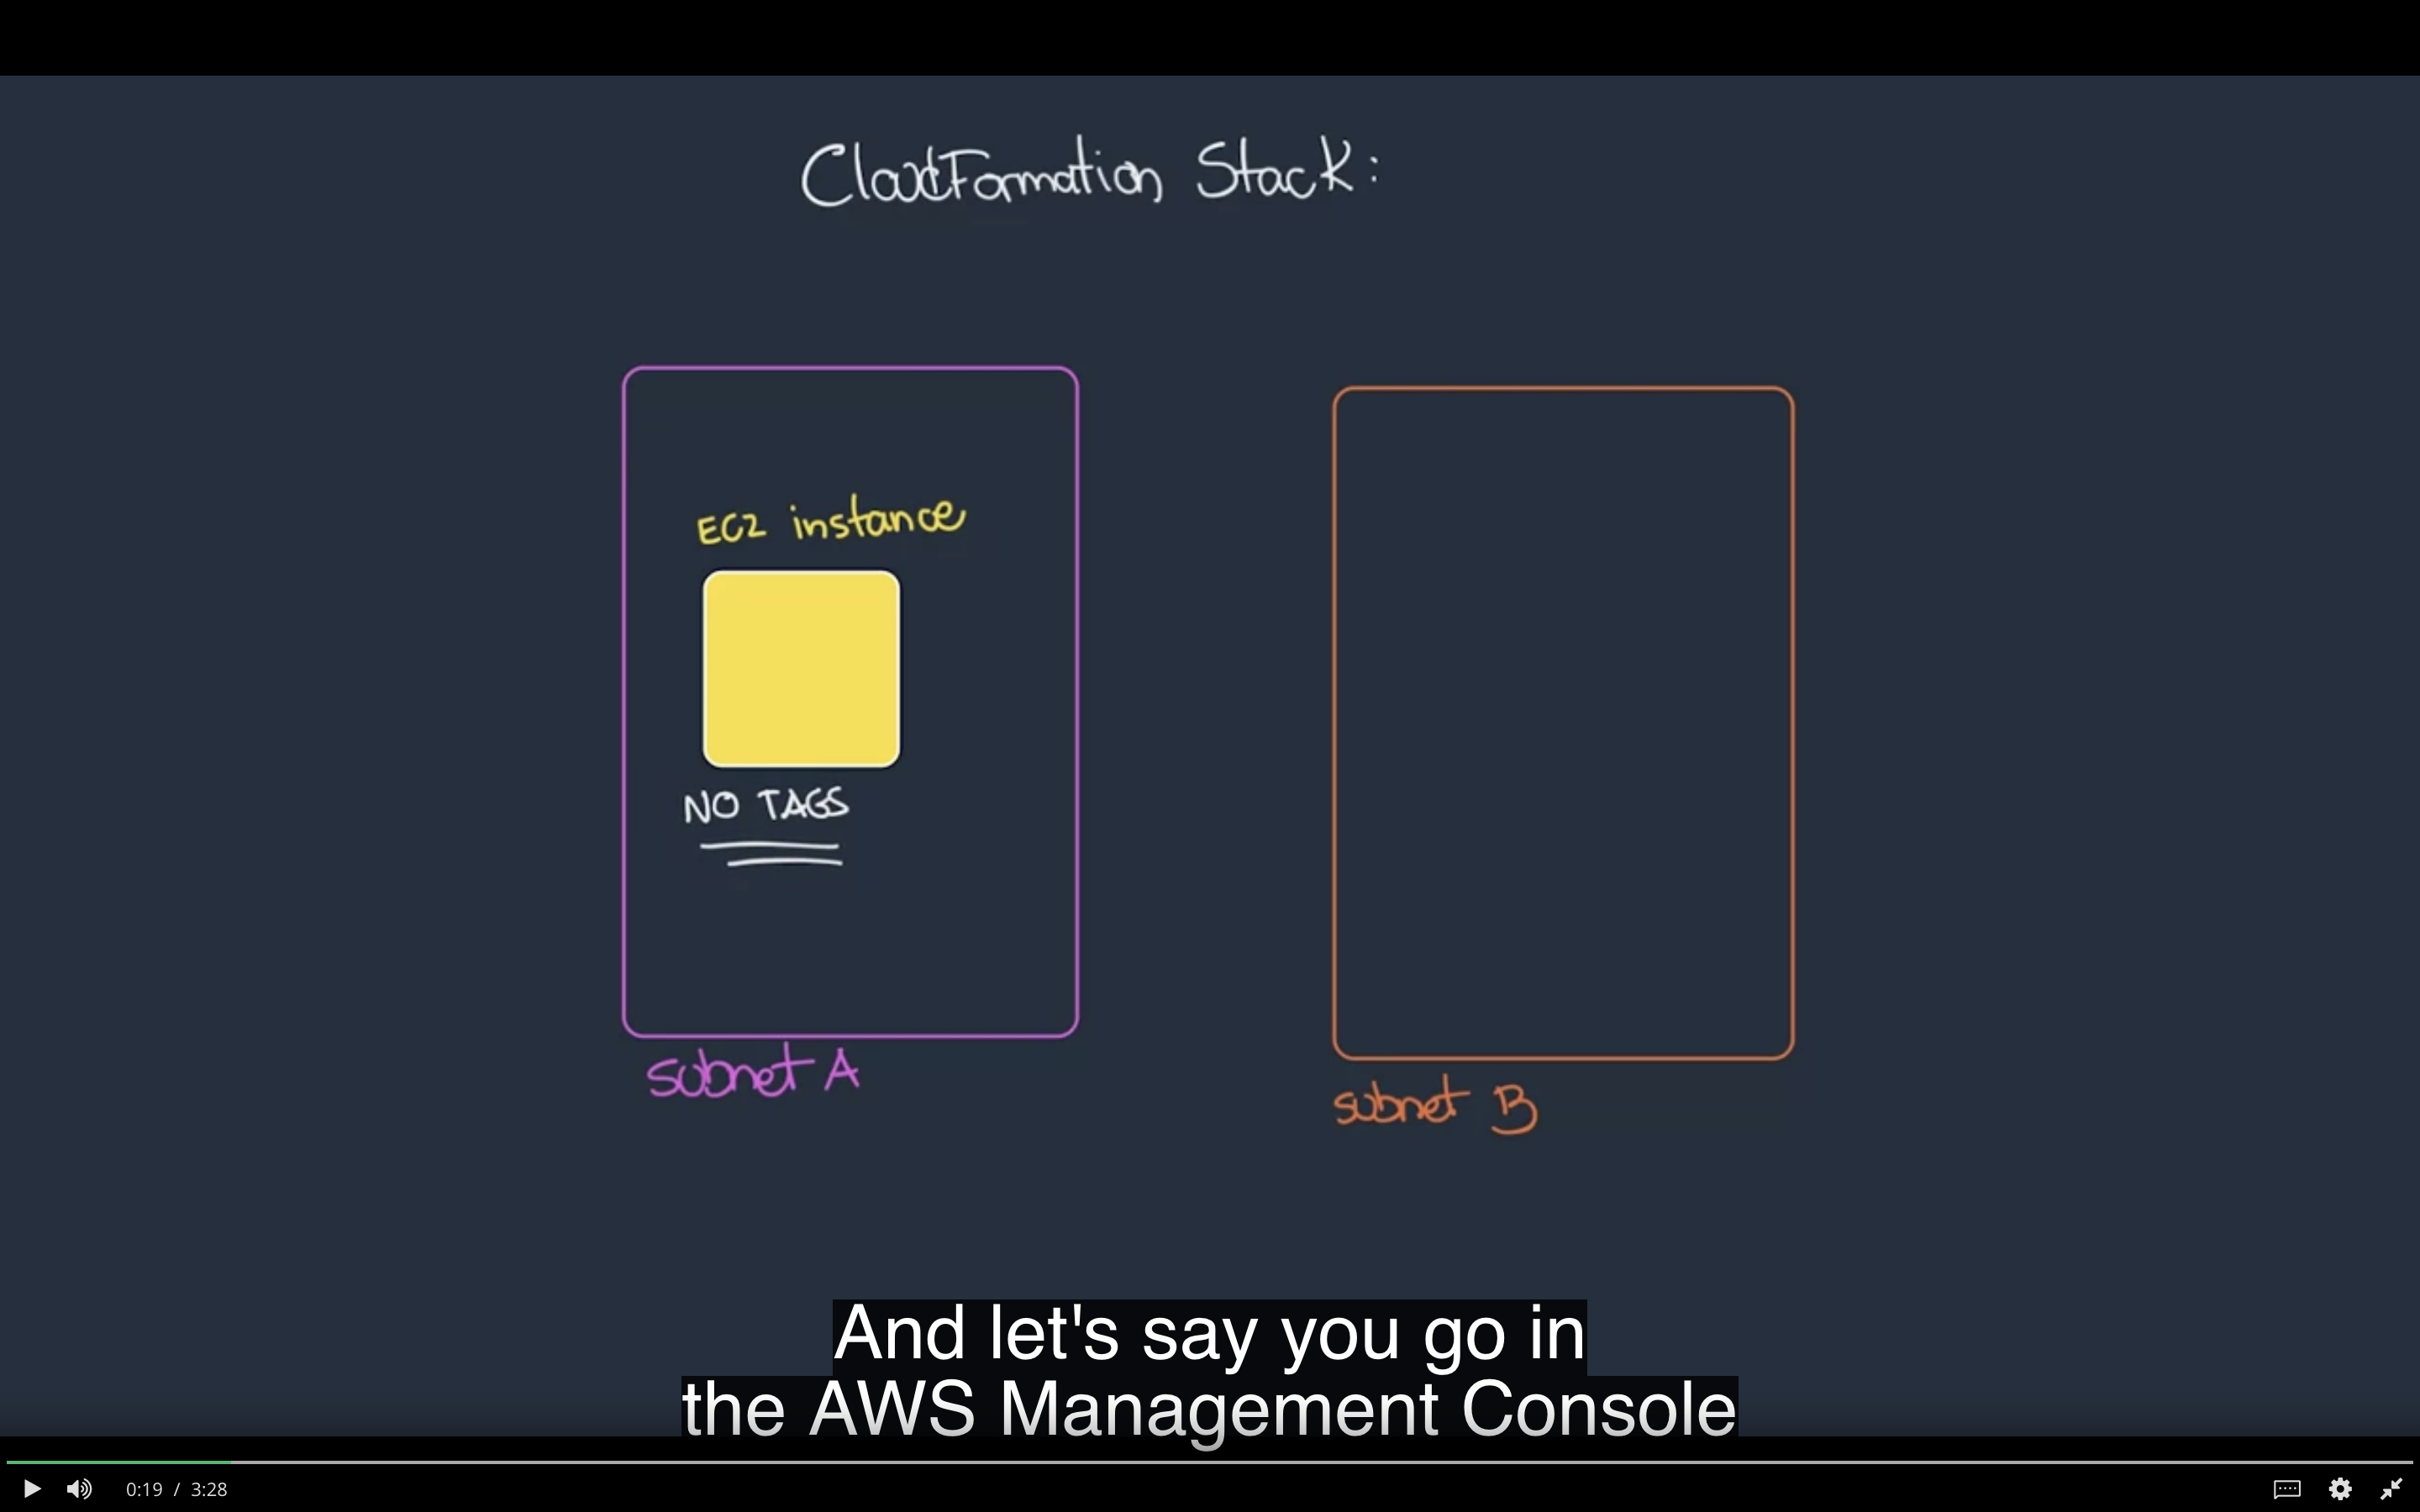 CloudFormation Stack:
EC2 instance
NO TAGS
subnet A
subnet B
And let's say you go in
the AWS Management Console
0:19 / 3:28